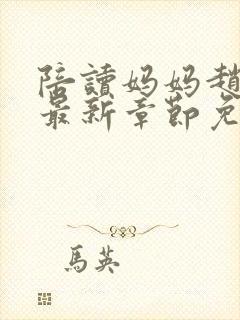 陪讀妈妈趙
最新章節免
馬英